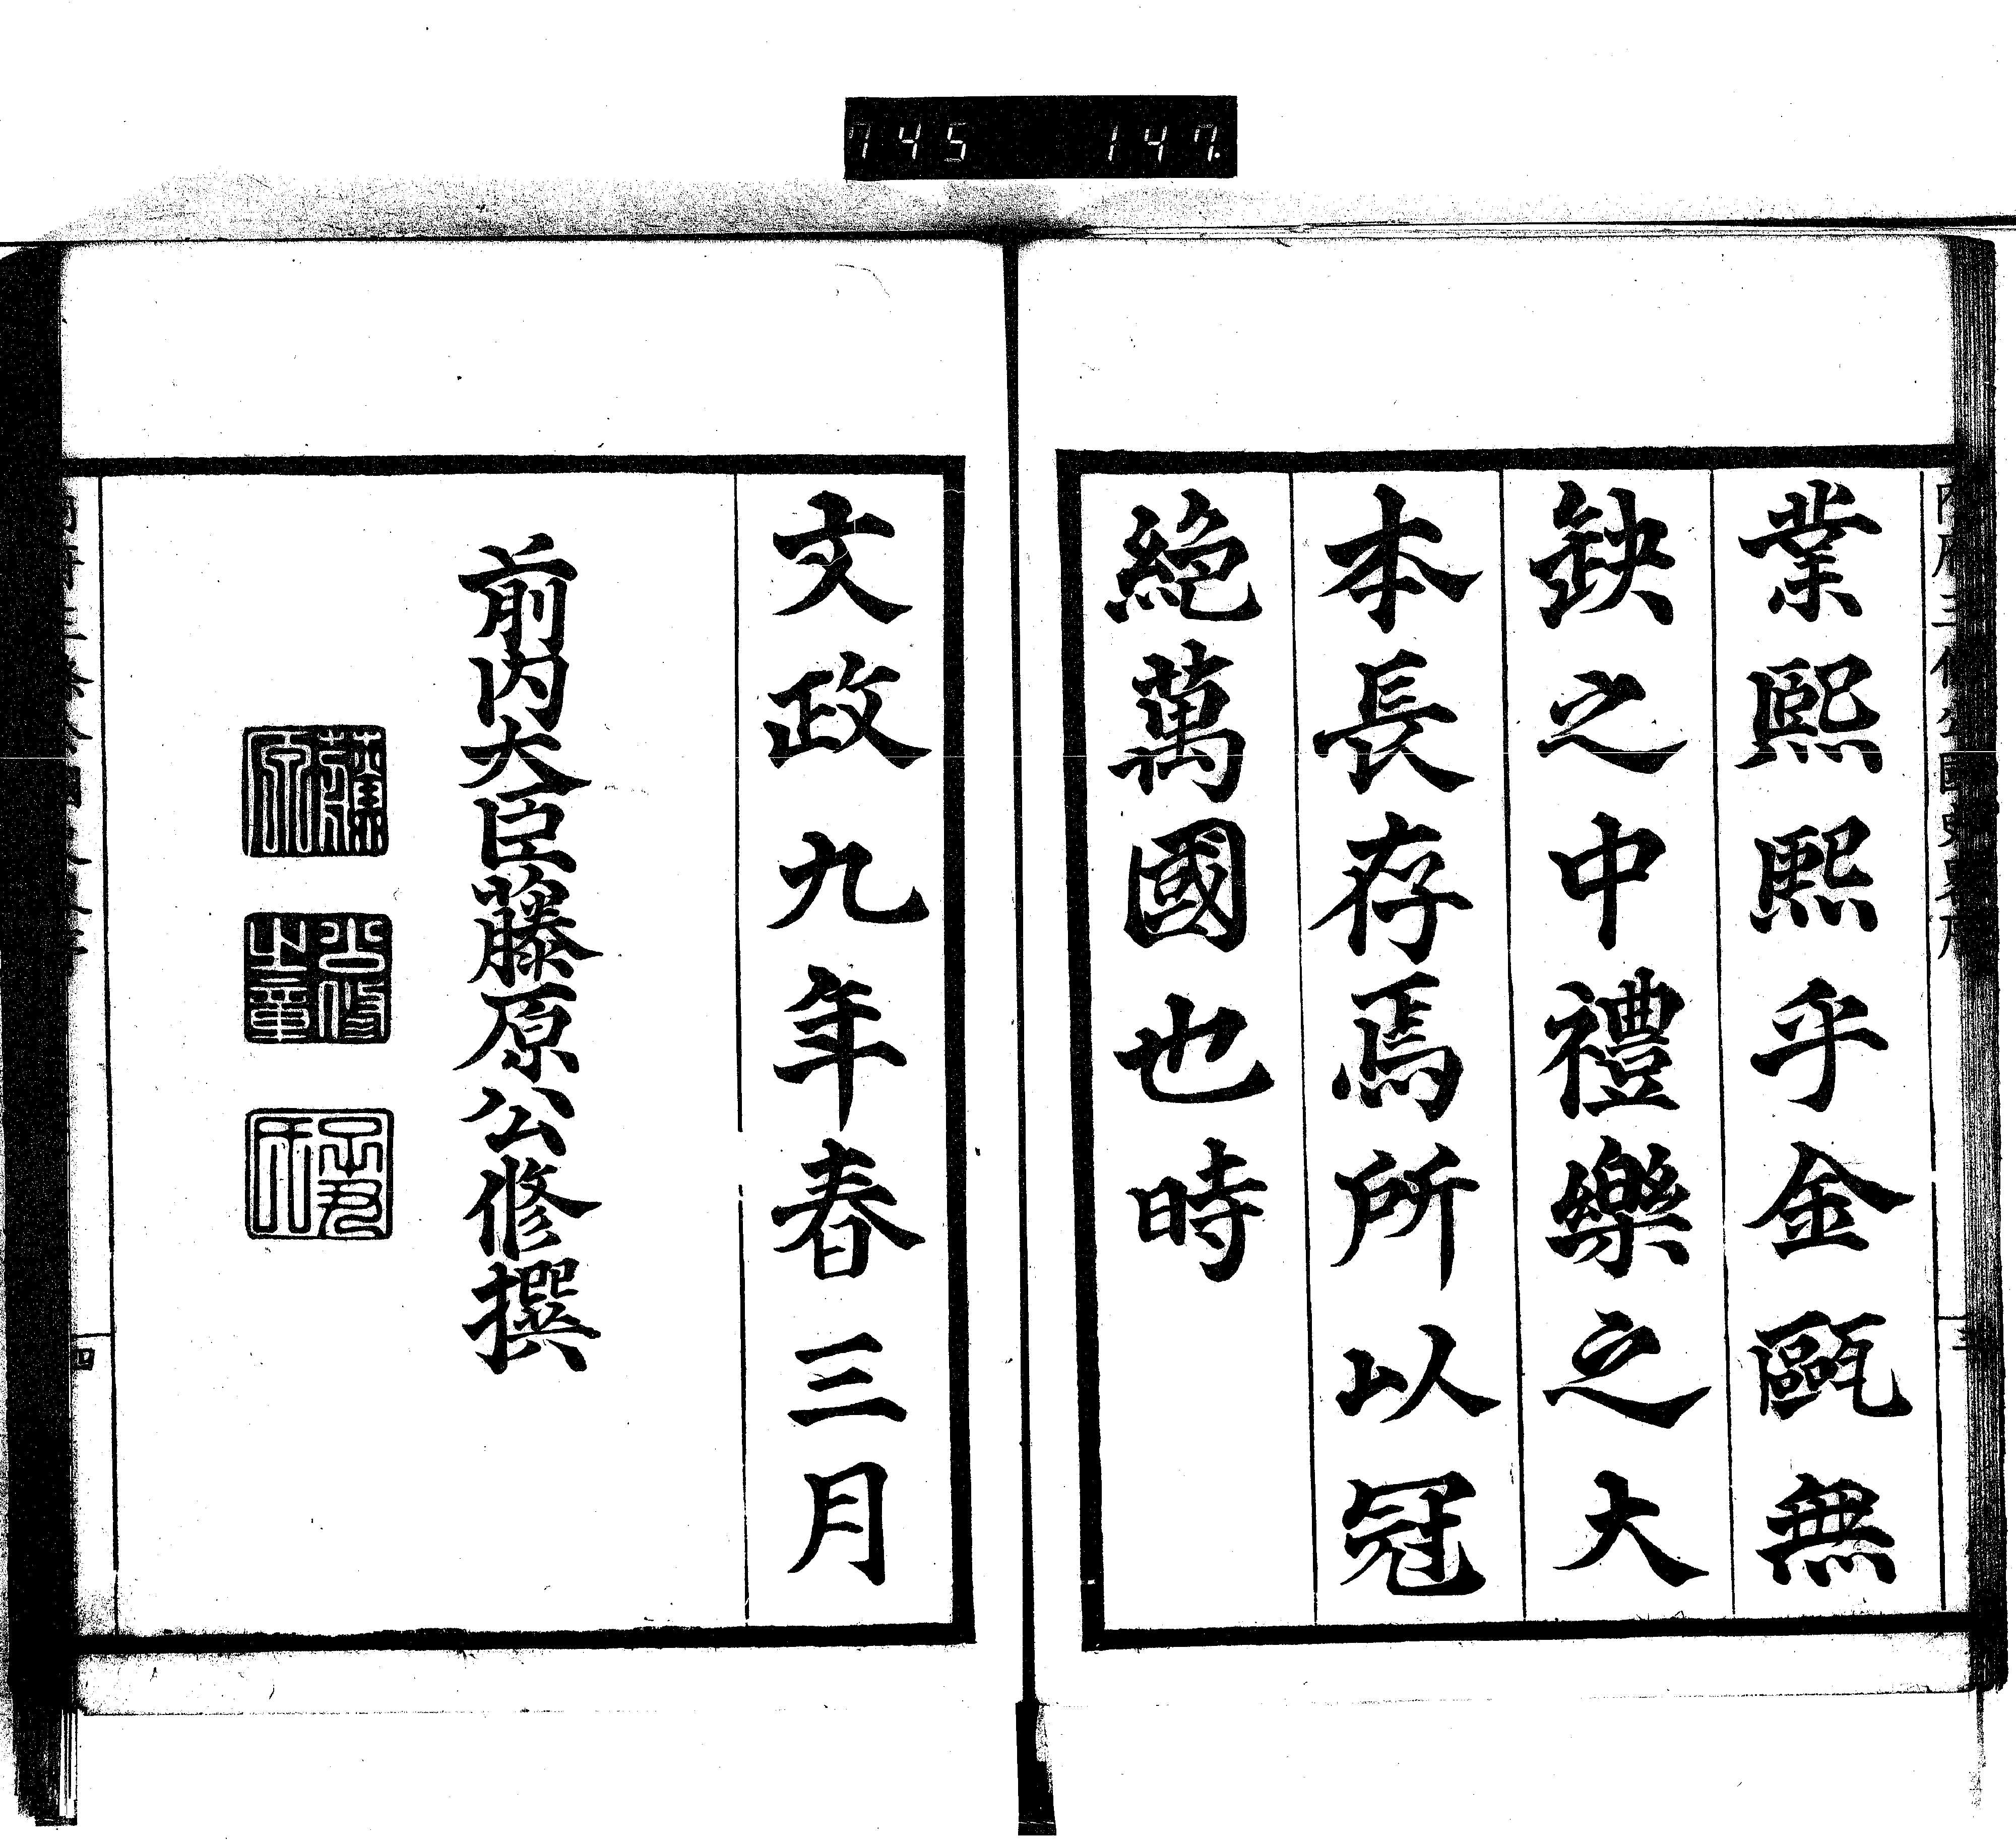 745 147
業熙熙乎金甌無
缺之中禮樂之大
本長存焉所以冠
絕萬國也時
文政九年春三月
前内大臣藤原公修撰
藤原
公修之章
四